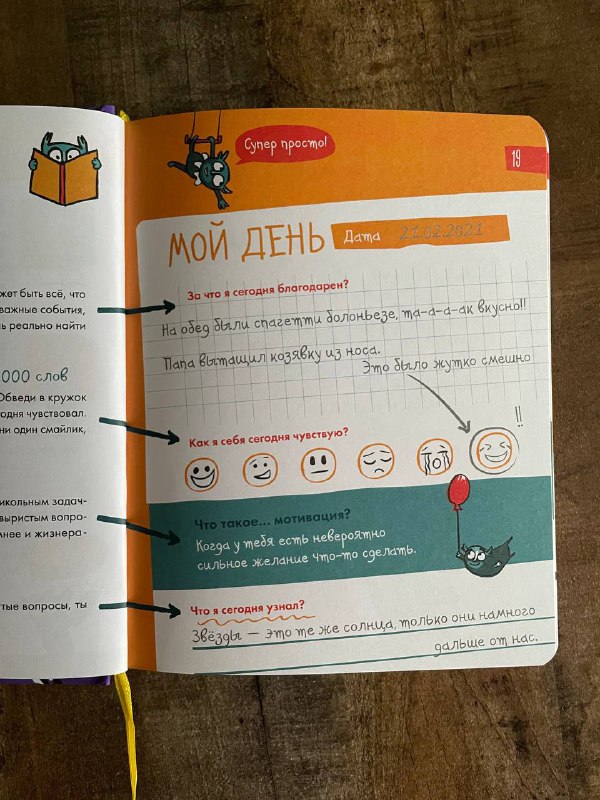 жет быть всё, что
важные события,
ь реально найти
000 слов
Обведи в кружок
годня чувствовал.
ни один смайлик,
икольным задач-
выристым вопро-
мнее и жизнера-
тые вопросы, ты
Супер просто!
19
МОЙ ДЕНЬ
Дата 21.02.2021
За что я сегодня благодарен?
На обед были спагетти болоньезе, та-а-а-ак вкусно!!
Папа вытащил козявку из носа.
Это было жутко смешно
!!
Как я себя сегодня чувствую?
Что такое... мотивация?
Когда у тебя есть невероятно
сильное желание что-то сделать.
Что я сегодня узнал?
Звёзды — это те же солнца, только они намного
дальше от нас.